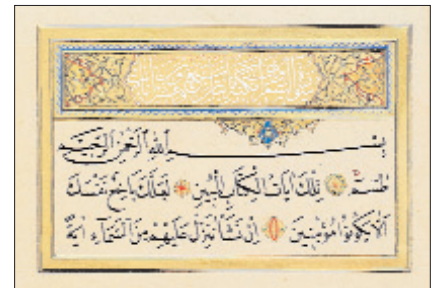 بسم الله الرحمن الرحيم
طسم تلك آيات الكتاب المبين لعلك باخع نفسك
ألا يكونوا مؤمنين إن نشأ ننزل عليهم من السماء آية